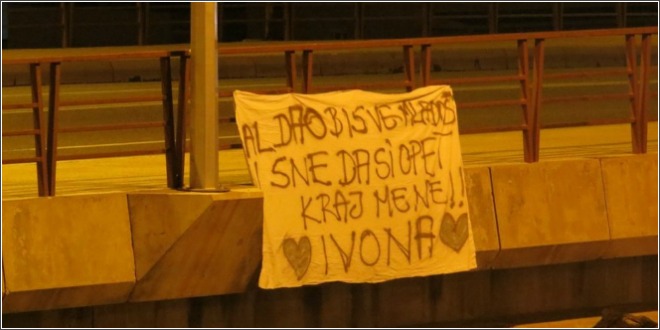 AL DAO BI SVE MLADOST
I SNE DA SI OPET
KRAJ MENE!!
♥ IVONA ♥